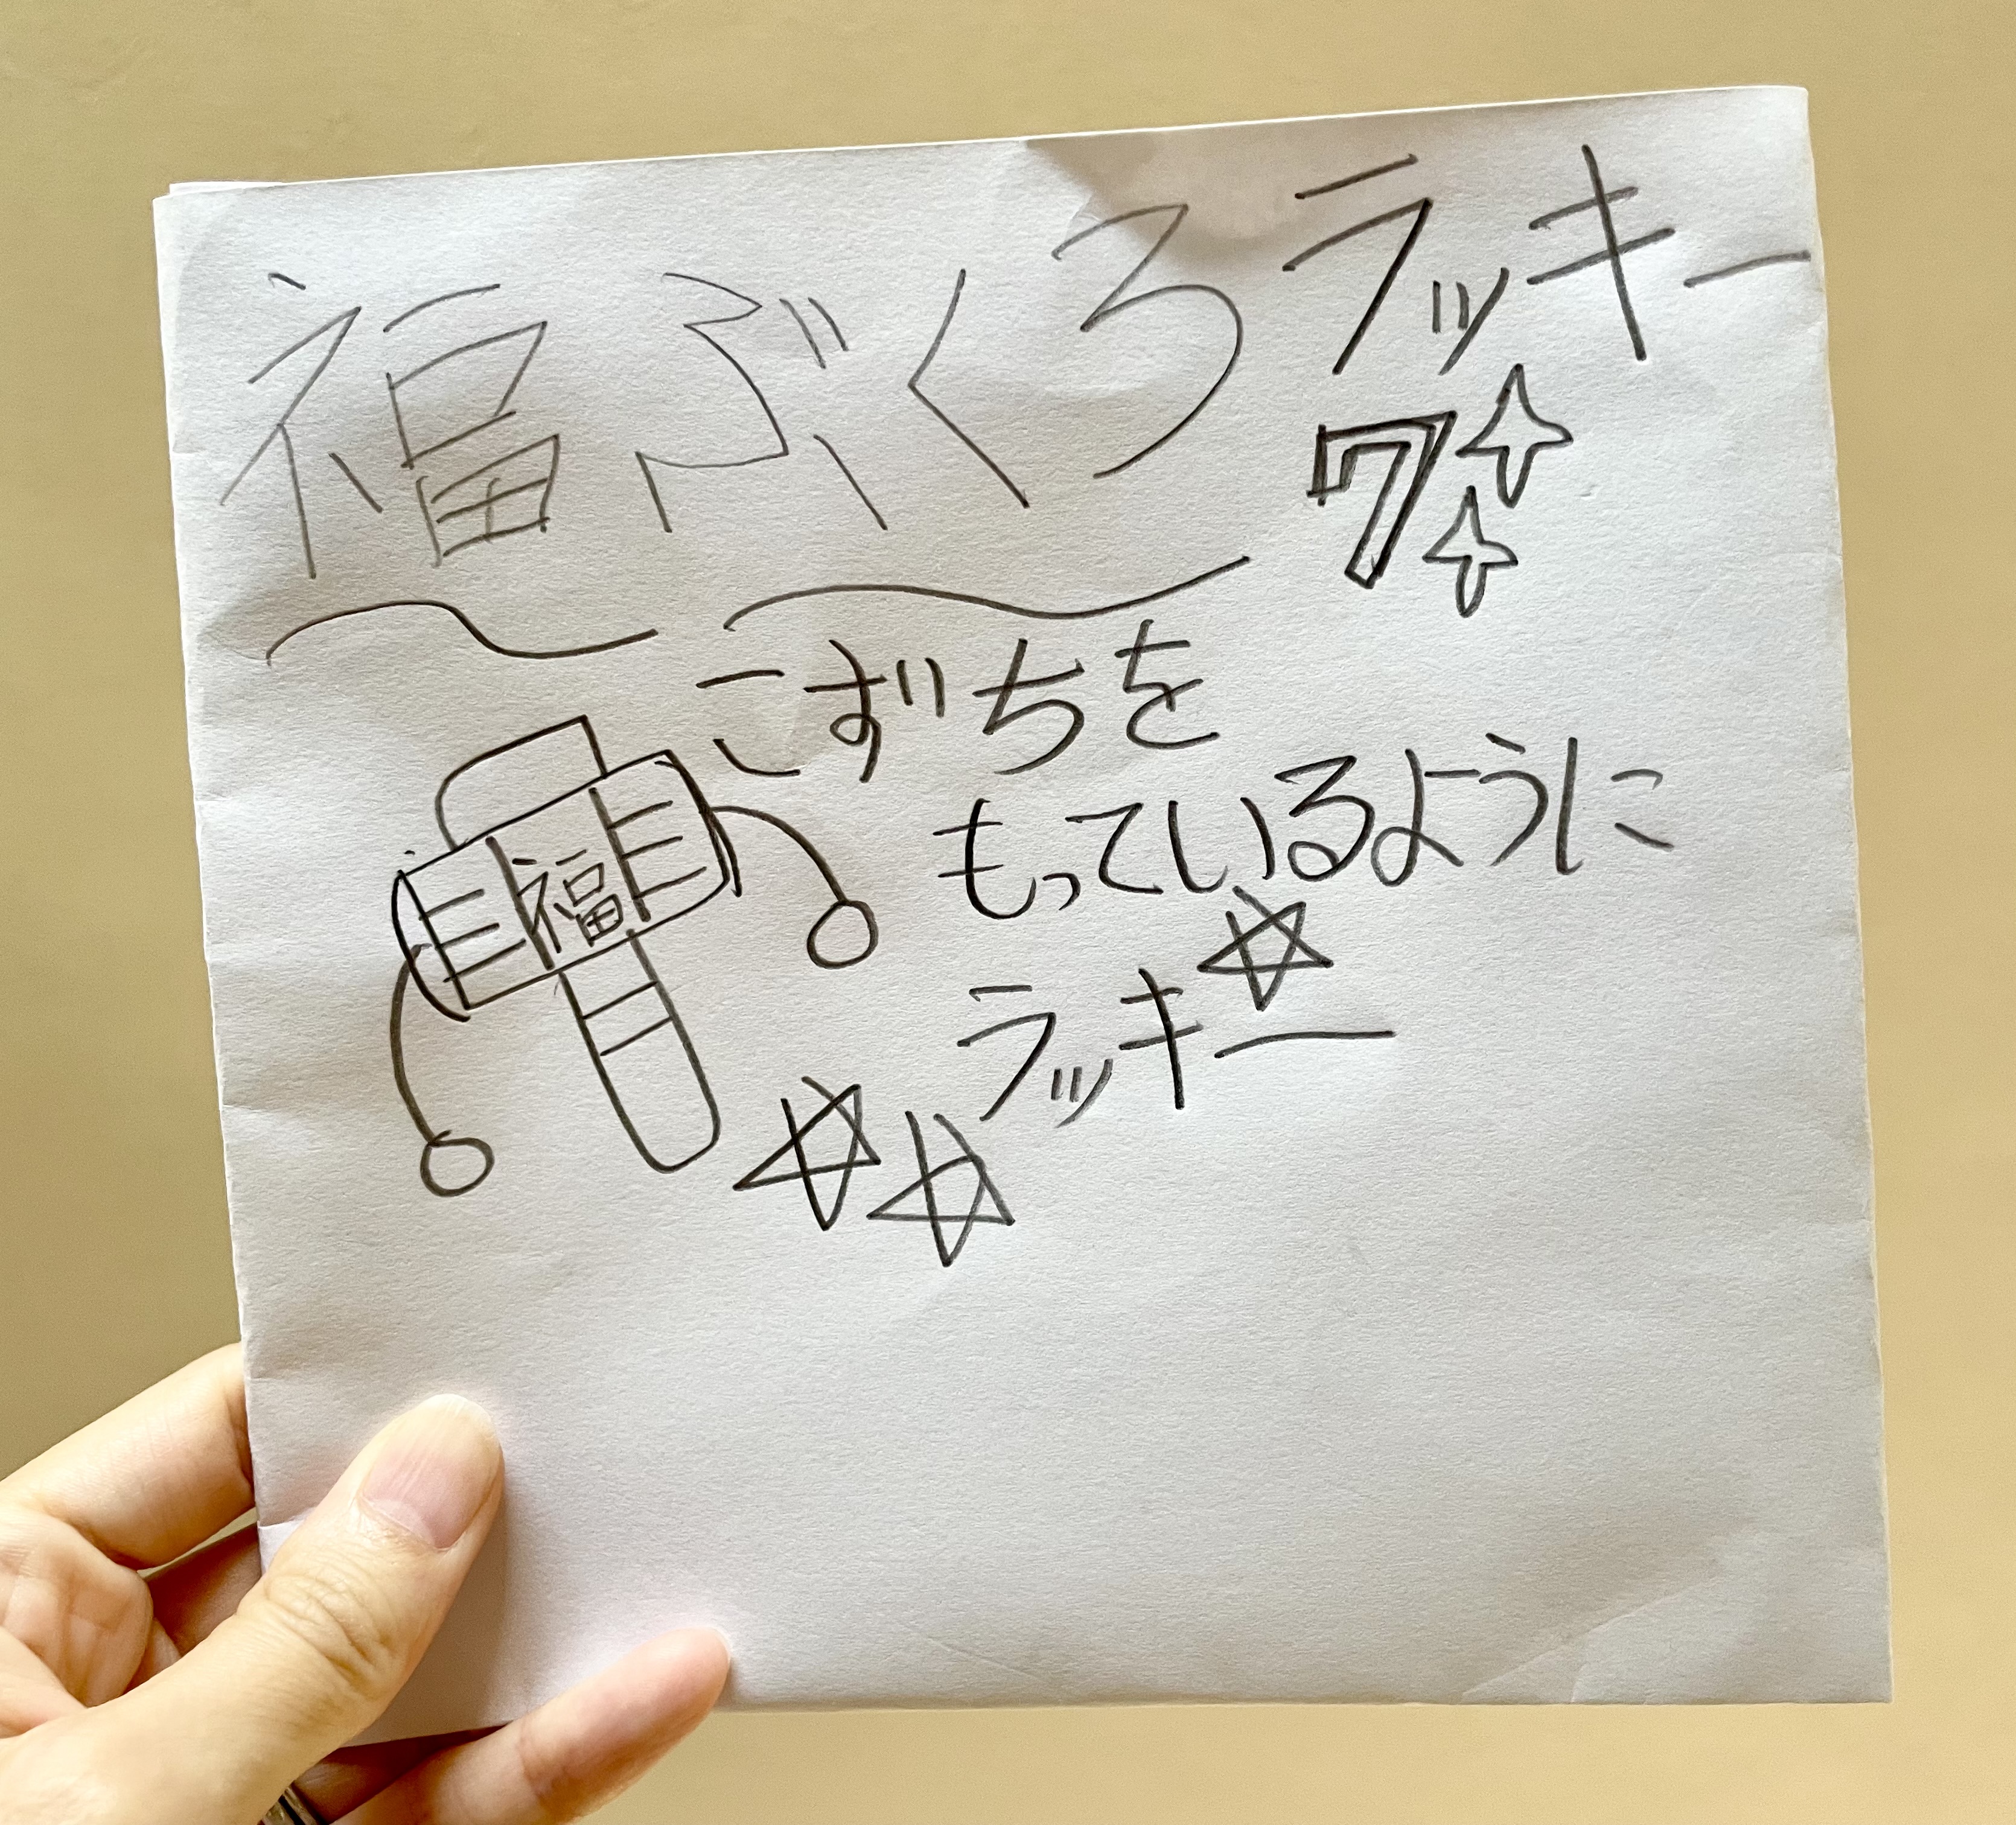 福ぶくろ
ラッキー
7
こずちを
もっているように
ラッキー
福